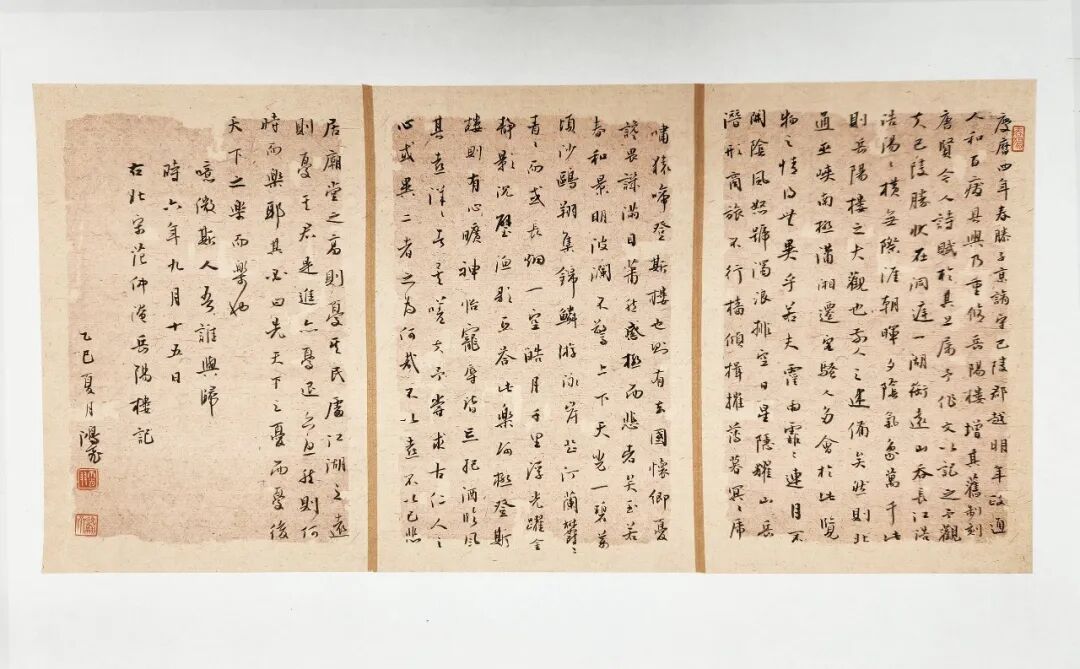 慶曆四年春滕子京謫守巴陵郡越明年政通
人和百廢具興乃重修岳陽樓增其舊制刻
唐賢今人詩賦於其上屬予作文以記之予觀
夫巴陵勝狀在洞庭一湖銜遠山吞長江浩
浩湯〻橫無際涯朝暉夕陰氣象萬千此
則岳陽樓之大觀也前人之述備矣然則北
通巫峽南極瀟湘遷客騷人多會於此覽
物之情得無異乎若夫霪雨霏〻連月不
開陰風怒號濁浪排空日星隱耀山岳
潛形商旅不行檣傾楫摧薄暮冥〻虎
嘯猿啼登斯樓也則有去國懷鄉憂
讒畏譏滿目蕭然感極而悲者矣至若
春和景明波瀾不驚上下天光一碧萬
頃沙鷗翔集錦鱗游泳岸芷汀蘭鬱〻
青〻而或長烟一空皓月千里浮光躍金
靜影沉璧漁歌互答此樂何極登斯
樓則有心曠神怡寵辱皆忘把酒臨風
其喜洋〻者矣嗟夫予嘗求古仁人之
心或異二者之為何哉不以喜不以己悲
居廟堂之高則憂其民處江湖之遠
則憂其君是進亦憂退亦憂然則何
時而樂耶其必曰先天下之憂而憂後
天下之樂而樂也
噫微斯人吾誰與歸
時六年九月十五日
右北宋范仲淹岳陽樓記
乙巳夏月鴻飛